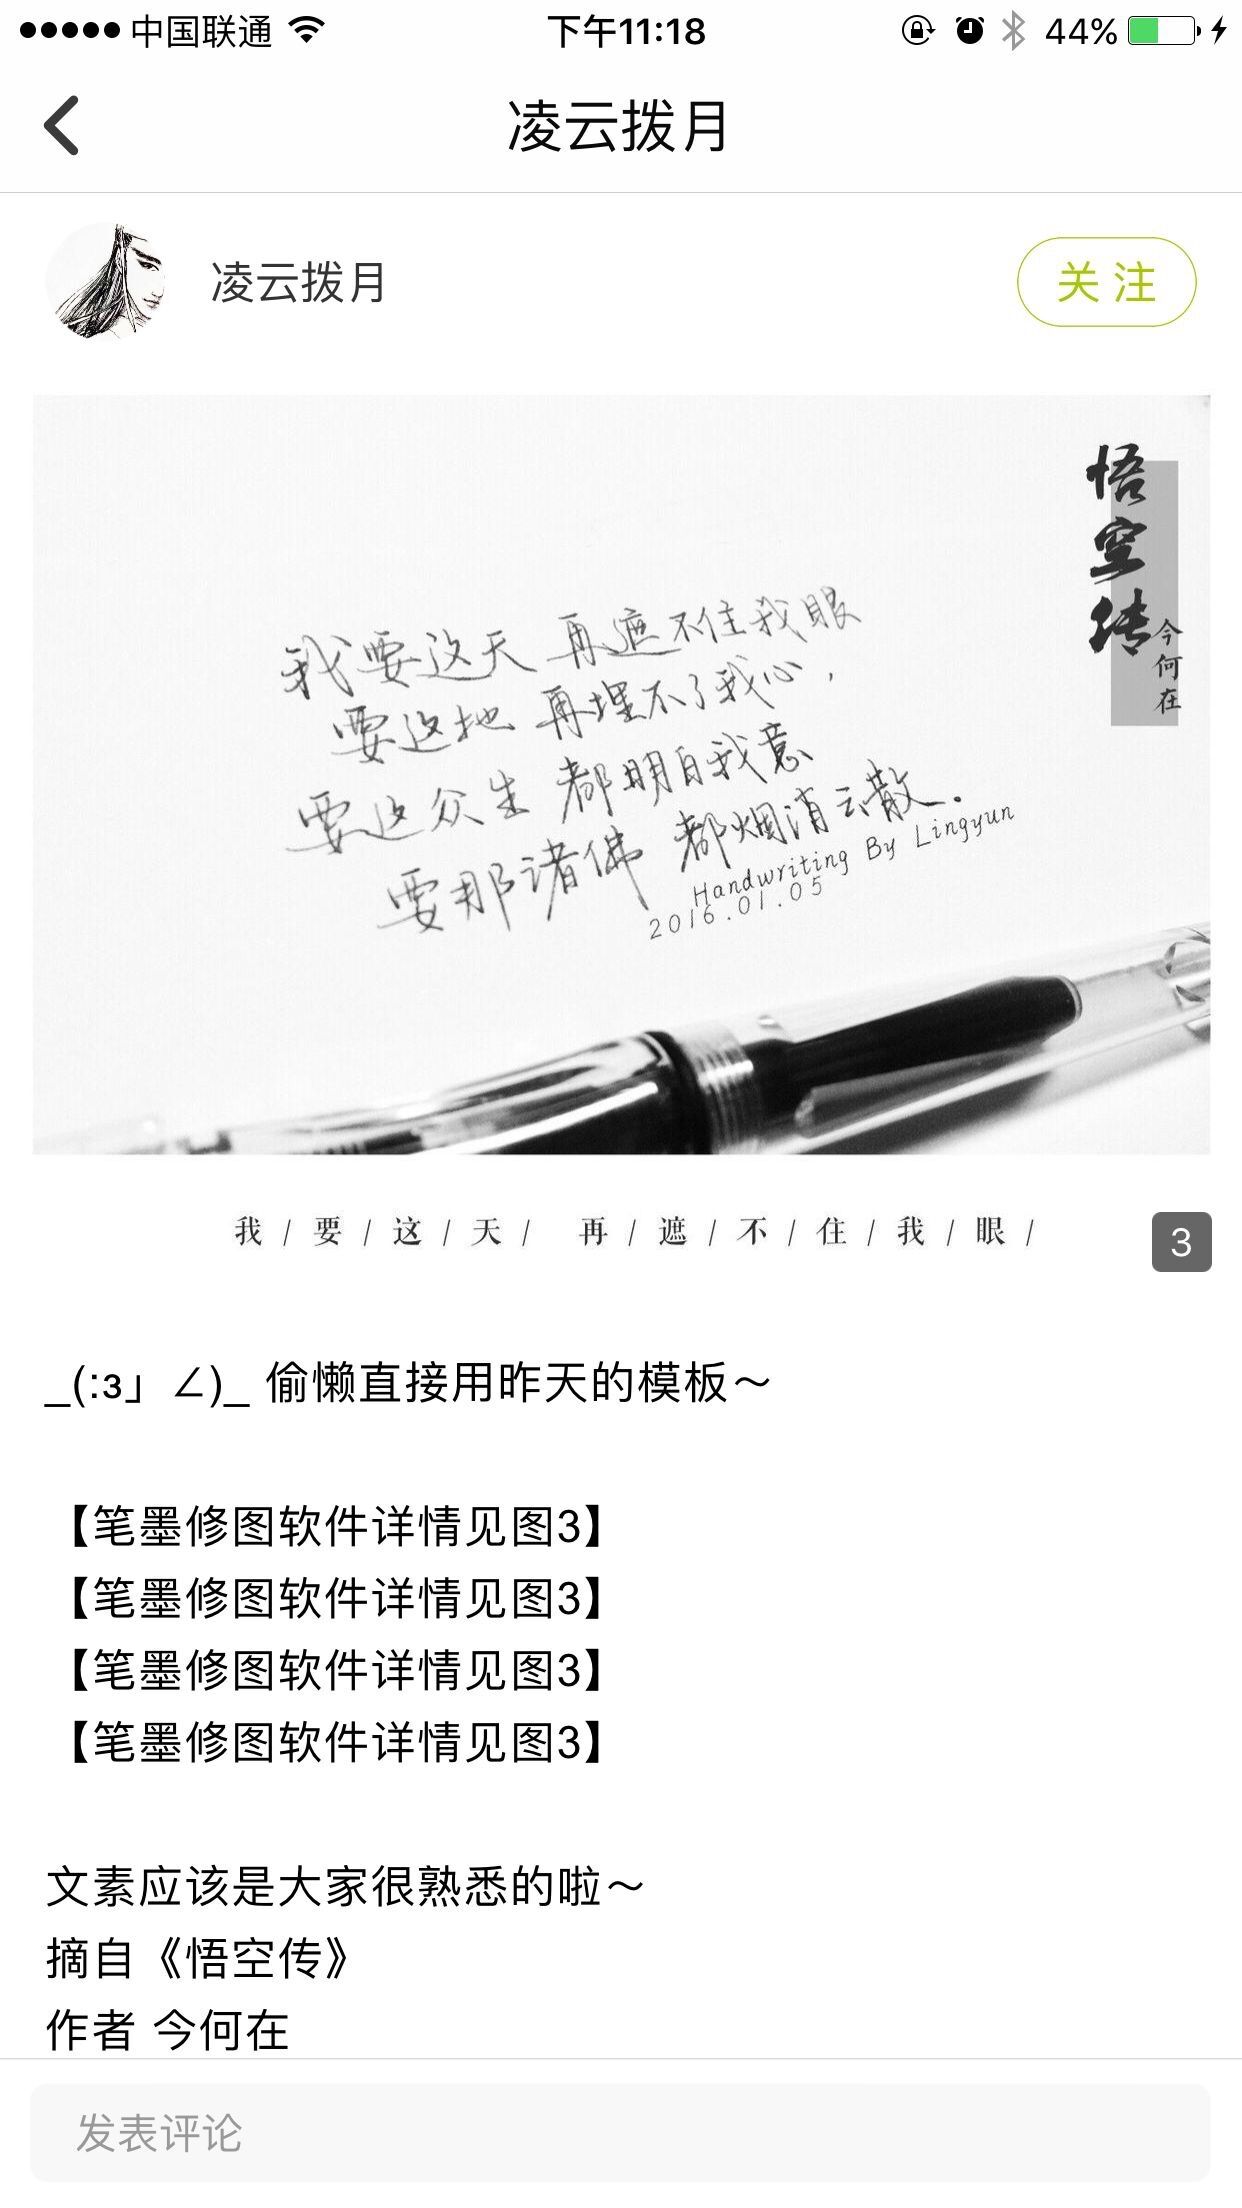 中国联通
下午11:18
44%
凌云拨月
凌云拨月
关注
悟空传
今何在
我要这天 再遮不住我眼
要这地 再埋不了我心,
要这众生 都明白我意
要那诸佛 都烟消云散.
Handwriting By Lingyun
2016.01.05
我 / 要 / 这 / 天 / 再 / 遮 / 不 / 住 / 我 / 眼 /
3
_(:з」∠)_ 偷懒直接用昨天的模板～
【笔墨修图软件详情见图3】
【笔墨修图软件详情见图3】
【笔墨修图软件详情见图3】
【笔墨修图软件详情见图3】
文素应该是大家很熟悉的啦～
摘自《悟空传》
作者 今何在
发表评论